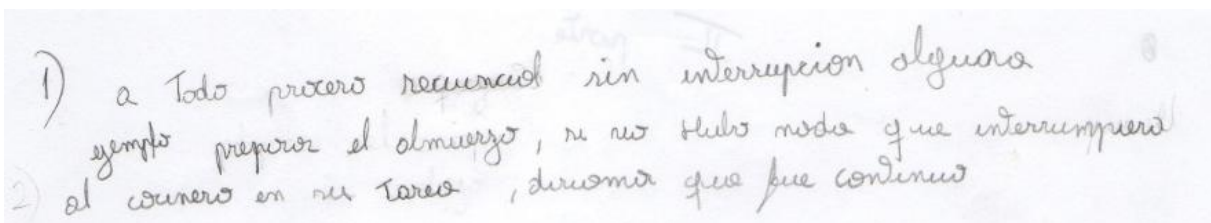 1) a Todo proceso secuencial sin interrupcion alguna
ejemplo preparar el almuerzo, si no Hubo nada que interrumpiera
2) al cocinero en su Tarea, diriamos que fue continuo